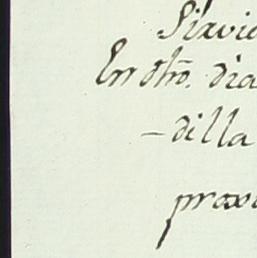 Sirvie
En dhō. dia
-dilla
proxi